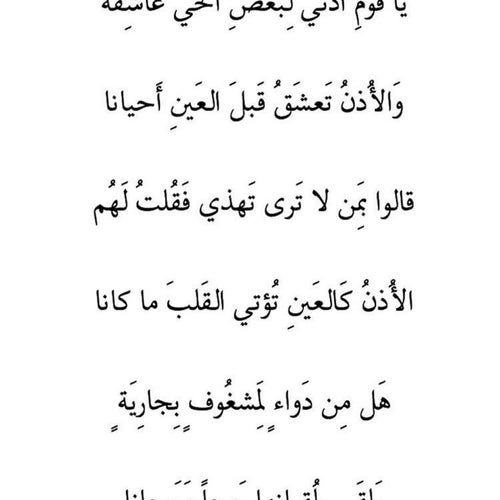 يا قومِ أذني لِبعضِ الحي عاشِقة
وَالأُذنُ تَعشَقُ قَبلَ العَينِ أَحيانا
قالوا بِمَن لا تَرى تَهذي فَقُلتُ لَهُم
الأُذنُ كَالعَينِ تُؤتي القَلبَ ما كانا
هَل مِن دَواءٍ لِمَشغُوفٍ بِجارِيَةٍ